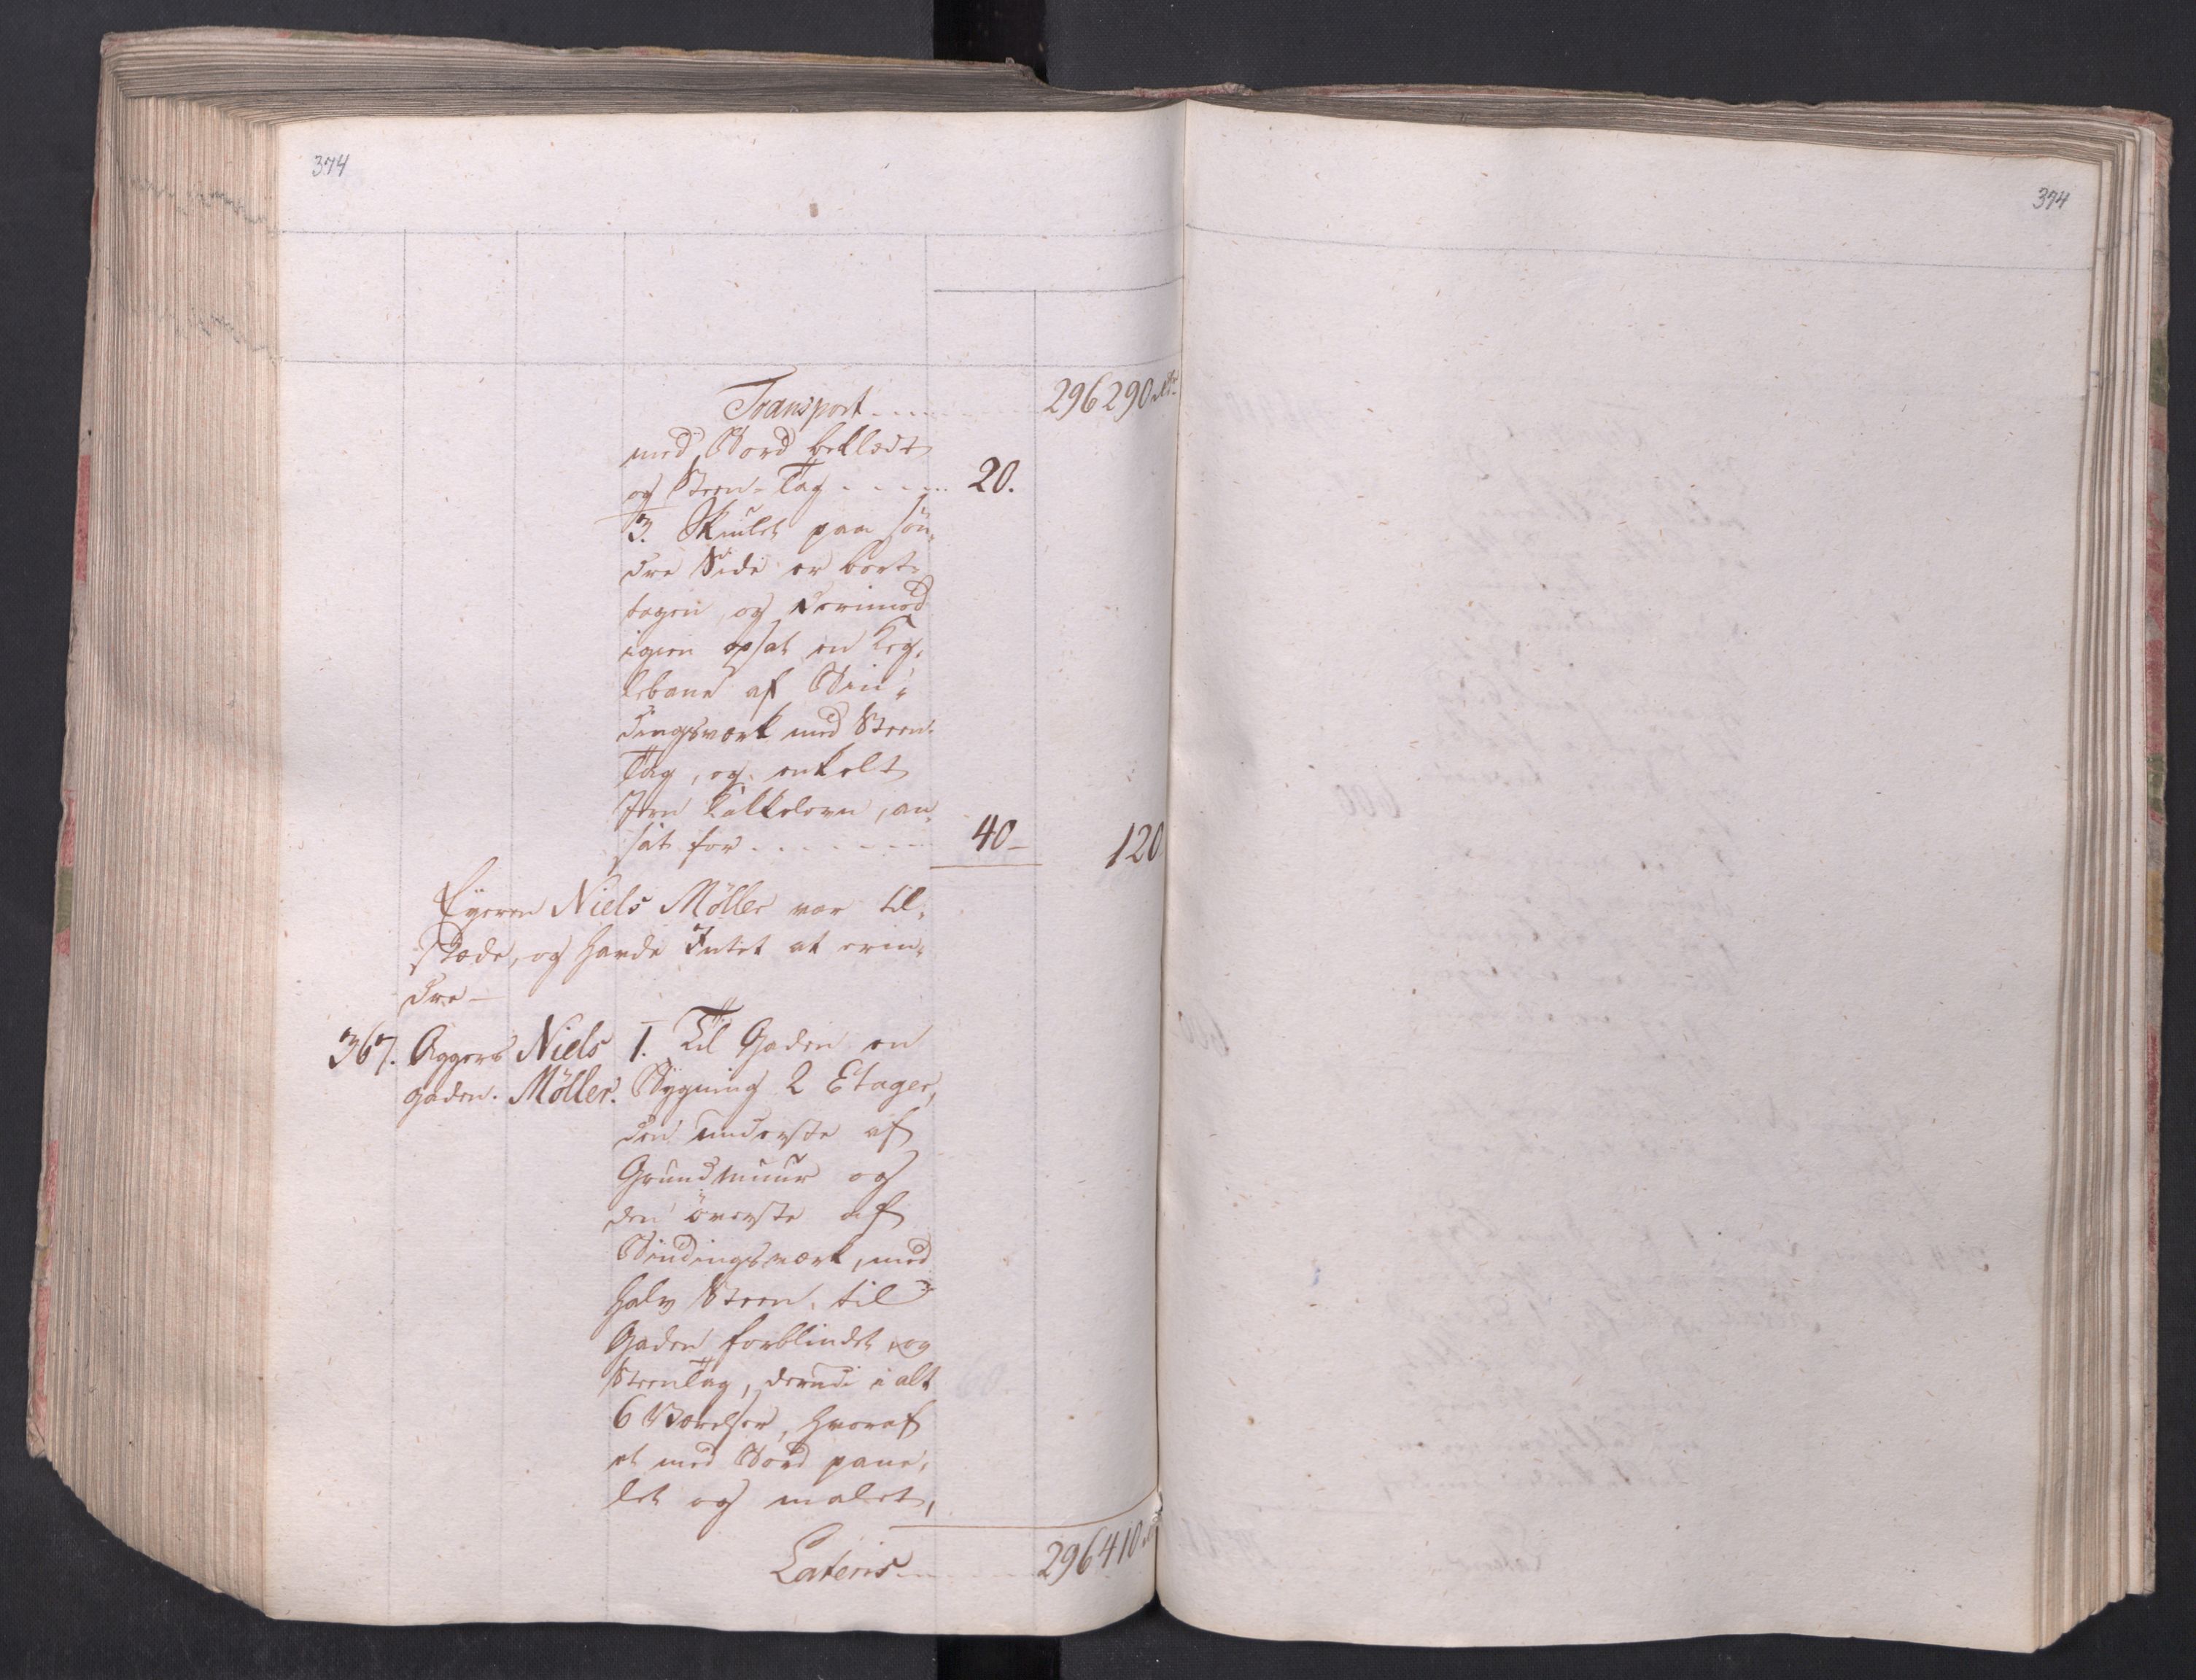 374
374
Transport - - - - - - 296290 rdr.
med Bord beklædt
og Steen-Tag - - - - - 20.
3. Skulet paa søn-
dre Side er bort-
tagen, og derimod
igien opsat en Keg-
lebane af Bin-
dingsværk med Steen-
Tag, og enkelt
Jern Kakkelovn, an-
sat for - - - - - - - 40 - 120
Eyeren Niels Möller var til-
stæde, og havde Intet at erin-
dre -
367. Aggers Niels 1. Til Gaden en
gaden. Möller. Bygning 2 Etager,
den underste af
Grundmuur og
den överste af
Bindingsværk, med
halv Steen til
Gaden forblindet, og
SteenTag, derudi i alt
6 Værelser, hvoraf
et med Bord pane-
let og malet,
Lateris - - - - - 296410